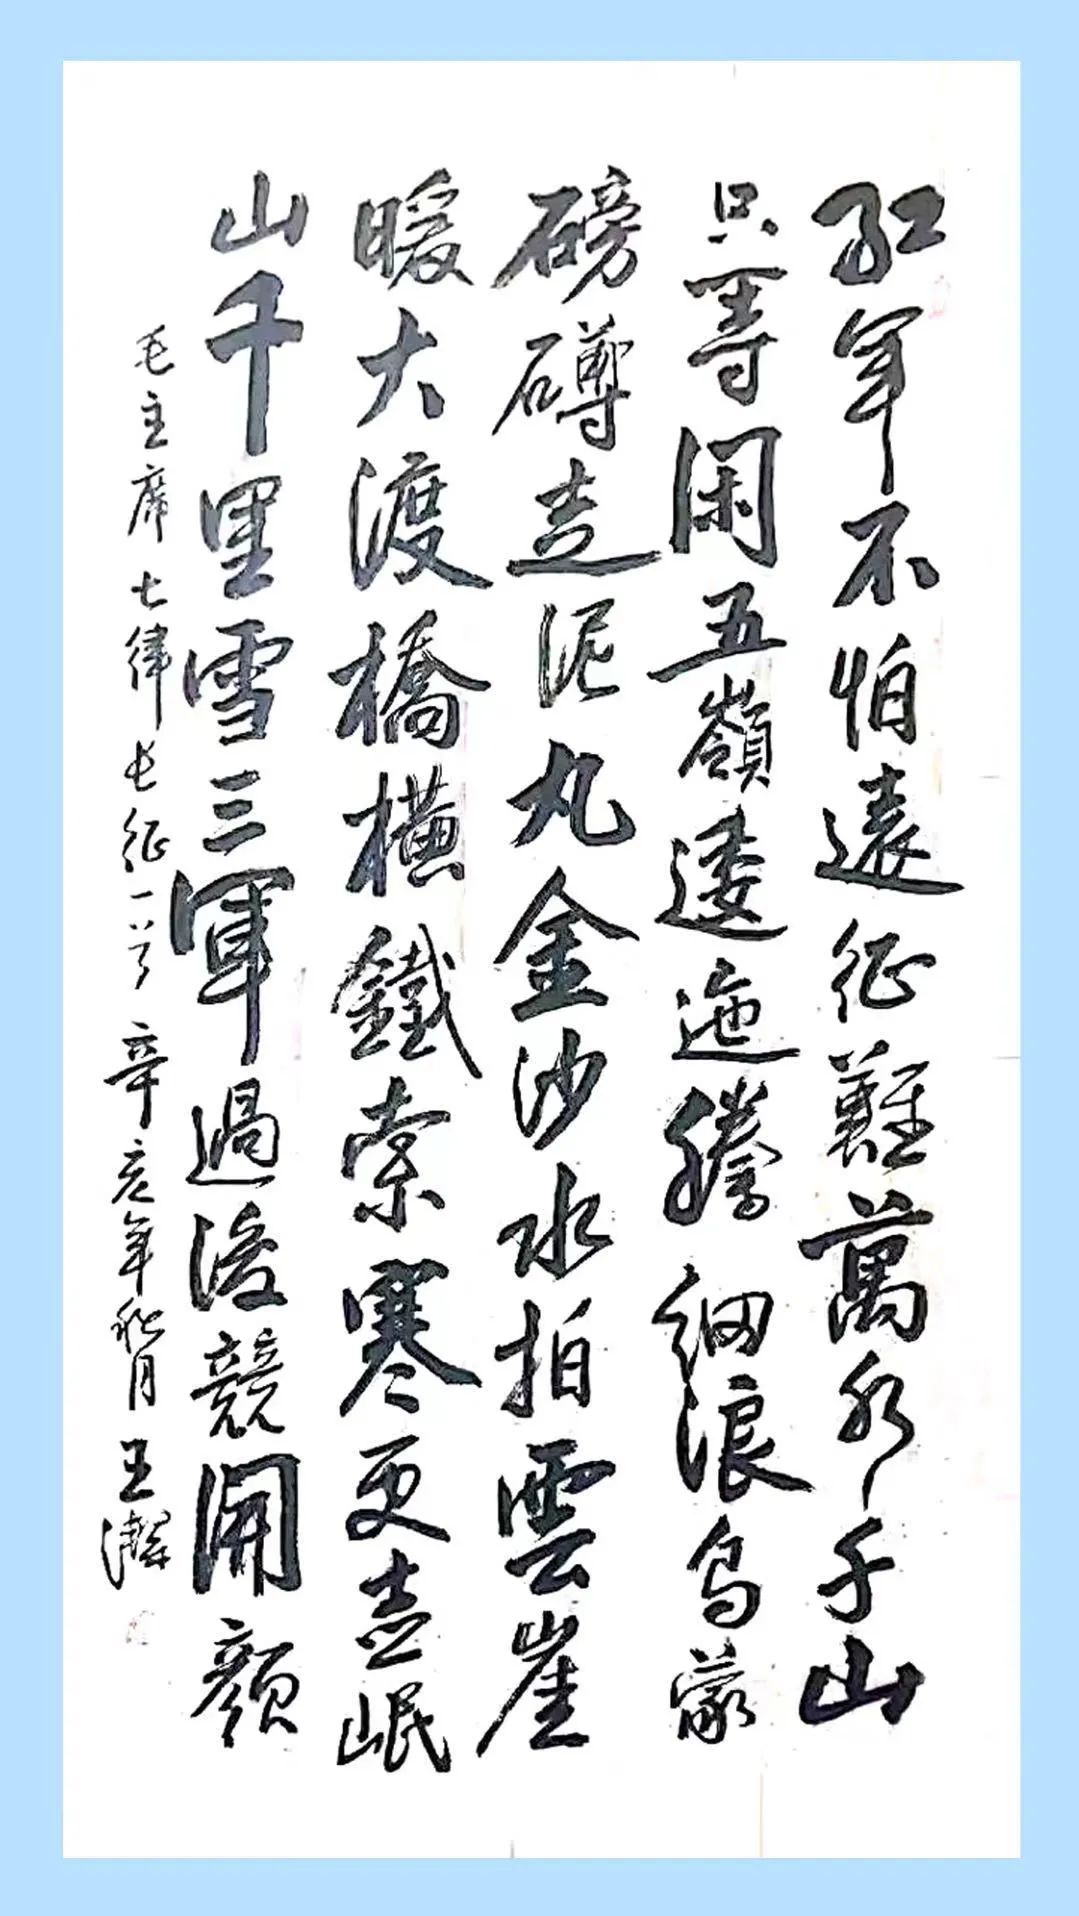 红军不怕遠征難萬水千山
只等闲五嶺逶迤腾细浪乌蒙
磅礴走泥丸金沙水拍雲崖
暖大渡橋横鐵索寒更喜岷
山千里雪三軍過後競開颜
毛主席七律长征一首 辛亥年秋月 王潔